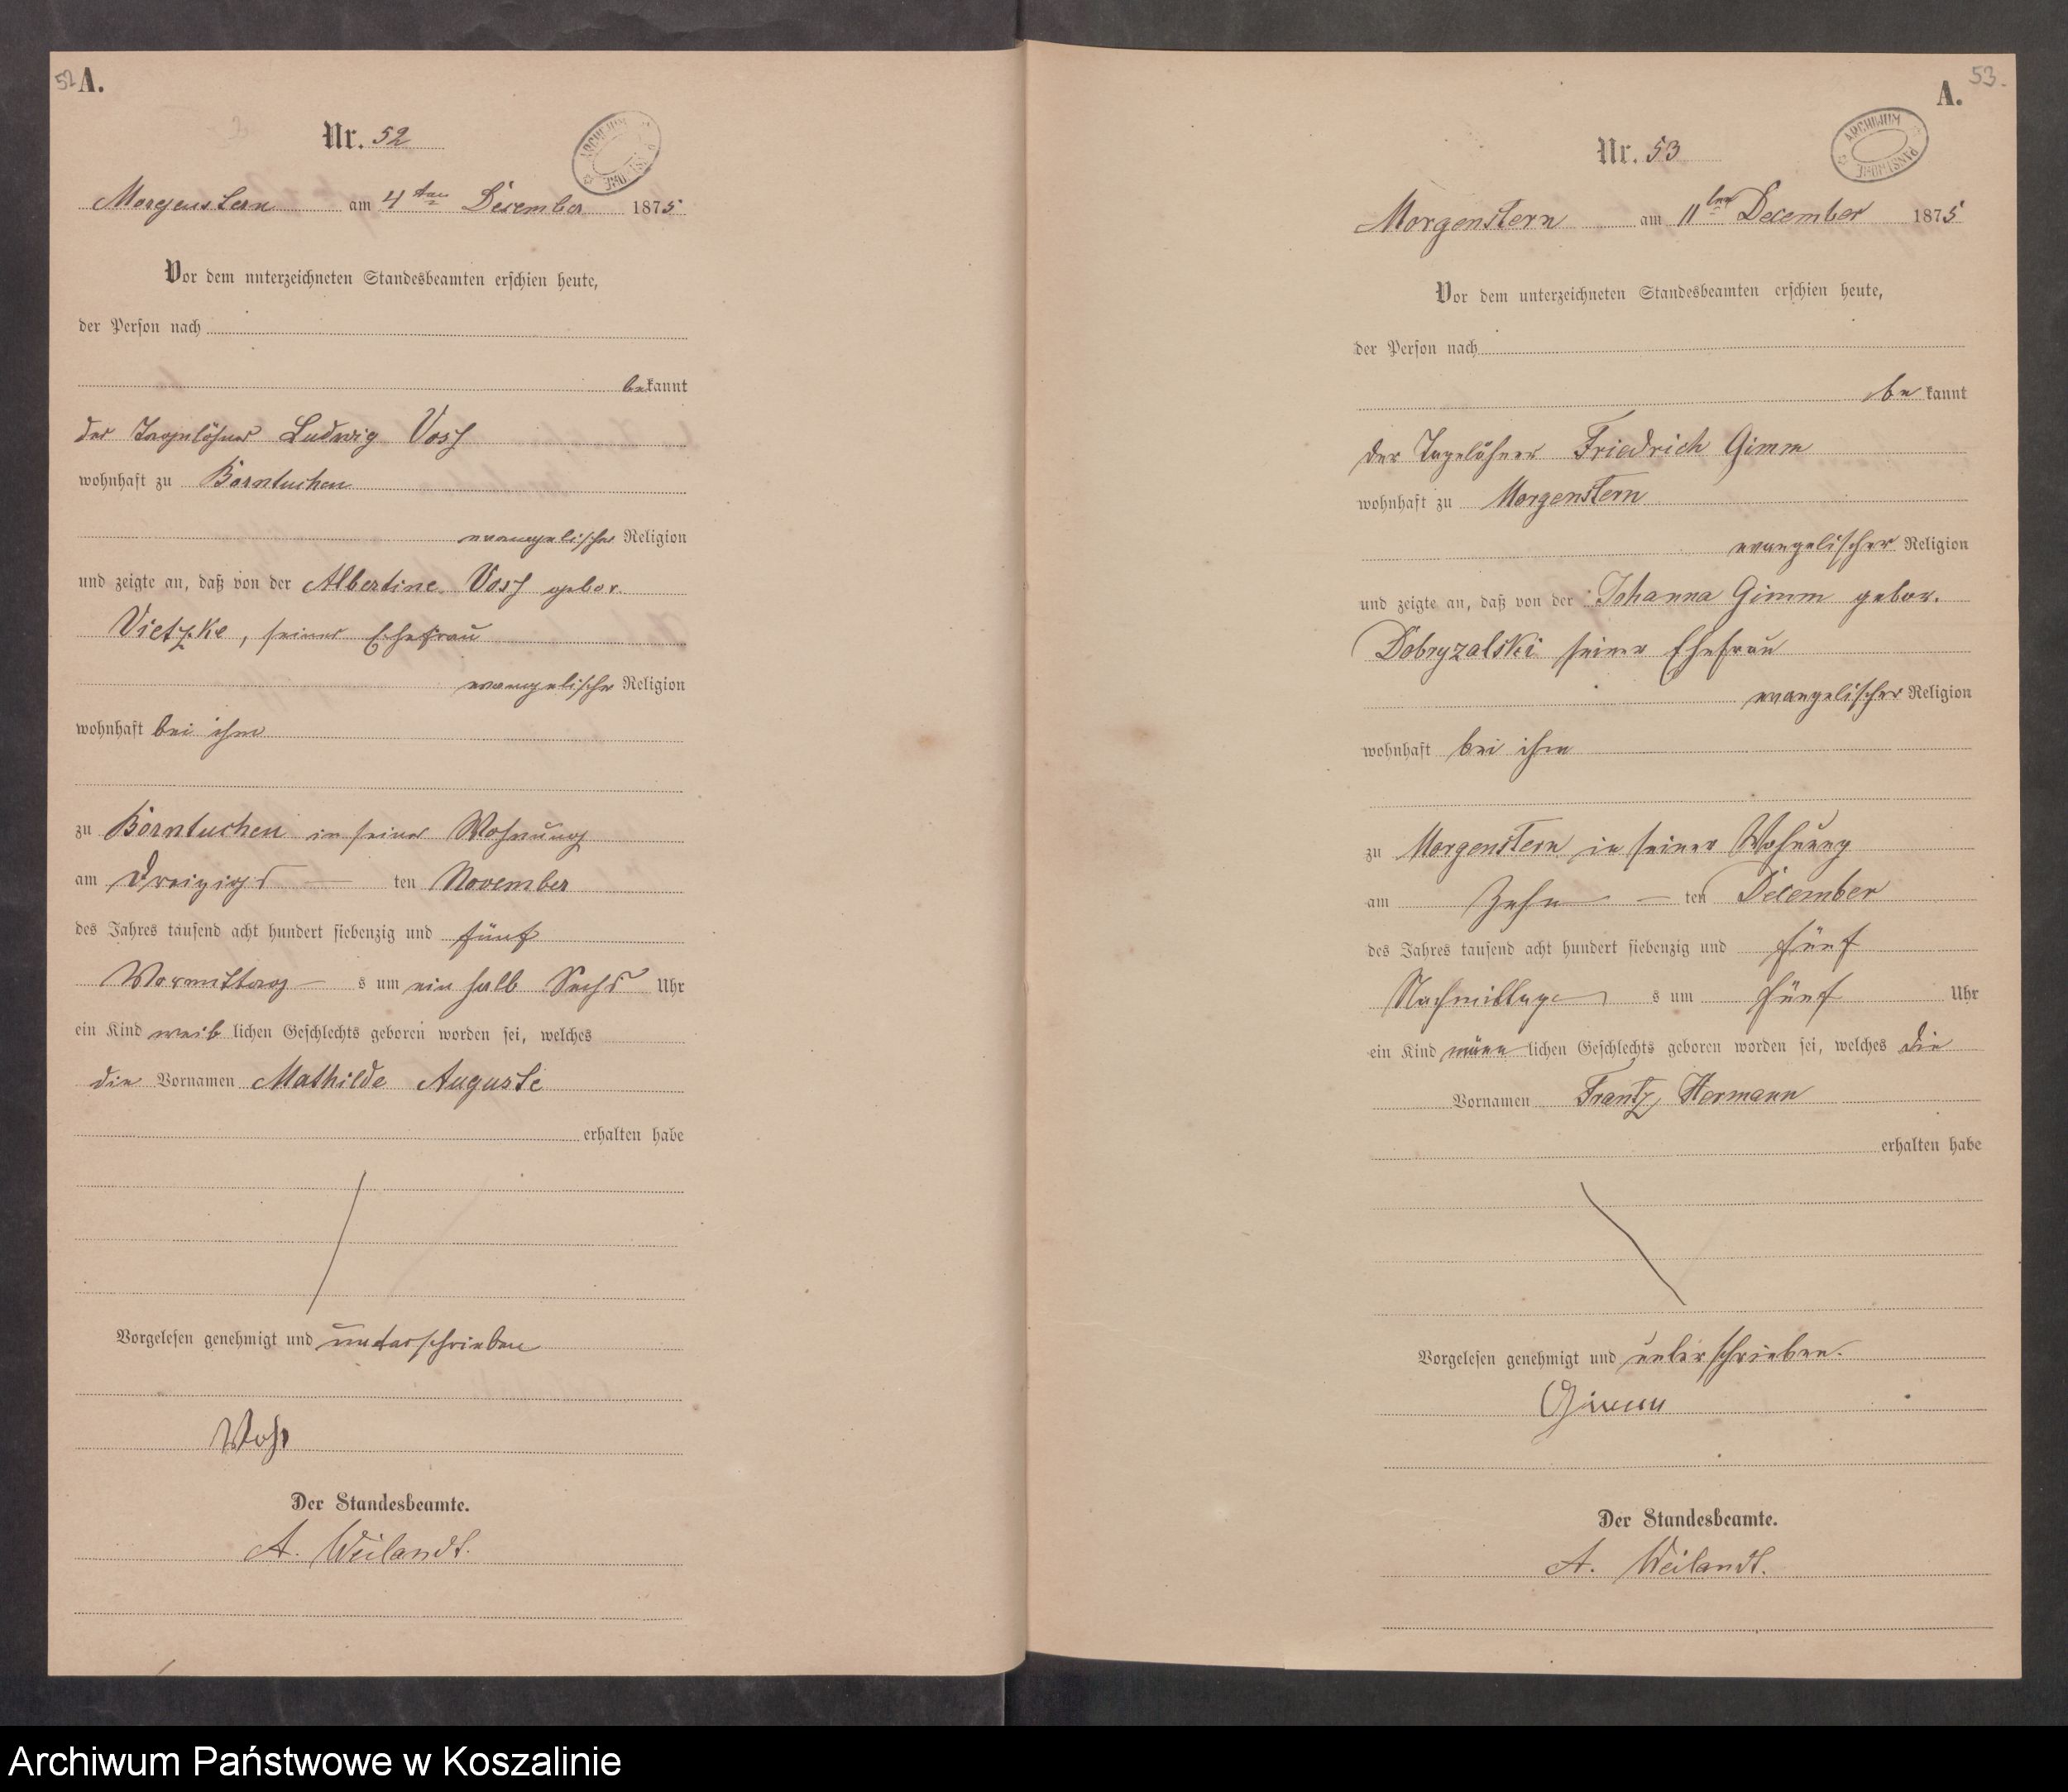 52 A.
Nr. 52
ARCHIWUM PAŃSTWOWE
Morgenstern am 4ten December 1875
Vor dem unterzeichneten Standesbeamten erschien heute,
der Person nach
bekannt
der Tagelöhner Ludwig Voss
wohnhaft zu Borntuchen
evangelischer Religion
und zeigte an, daß von der Albertine Voss gebor.
Vietzke, seiner Ehefrau
evangelischer Religion
wohnhaft bei ihm
zu Borntuchen in seiner Wohnung
am Dreizigs ten November
des Jahres tausend acht hundert siebenzig und fünf
Vormittag s um ein halb Sechs Uhr
ein Kind weiblichen Geschlechts geboren worden sei, welches
die Vornamen Mathilde Auguste
erhalten habe
Vorgelesen genehmigt und unterschrieben
Der Standesbeamte.
A. Weilandt.
A. 53.
Nr. 53
ARCHIWUM PAŃSTWOWE
Morgenstern am 11ten December 1875
Vor dem unterzeichneten Standesbeamten erschien heute,
der Person nach
bekannt
der Tagelöhner Friedrich Gimm
wohnhaft zu Morgenstern
evangelischer Religion
und zeigte an, daß von der Johanna Gimm gebor.
Dobryzalski seiner Ehefrau
evangelischer Religion
wohnhaft bei ihm
zu Morgenstern in seiner Wohnung
am Zehn ten December
des Jahres tausend acht hundert siebenzig und fünf
Nachmittags s um fünf Uhr
ein Kind männlichen Geschlechts geboren worden sei, welches die
Vornamen Frantz Hermann
erhalten habe
Vorgelesen genehmigt und unterschrieben.
Gimm
Der Standesbeamte.
A. Weilandt.
Archiwum Państwowe w Koszalinie